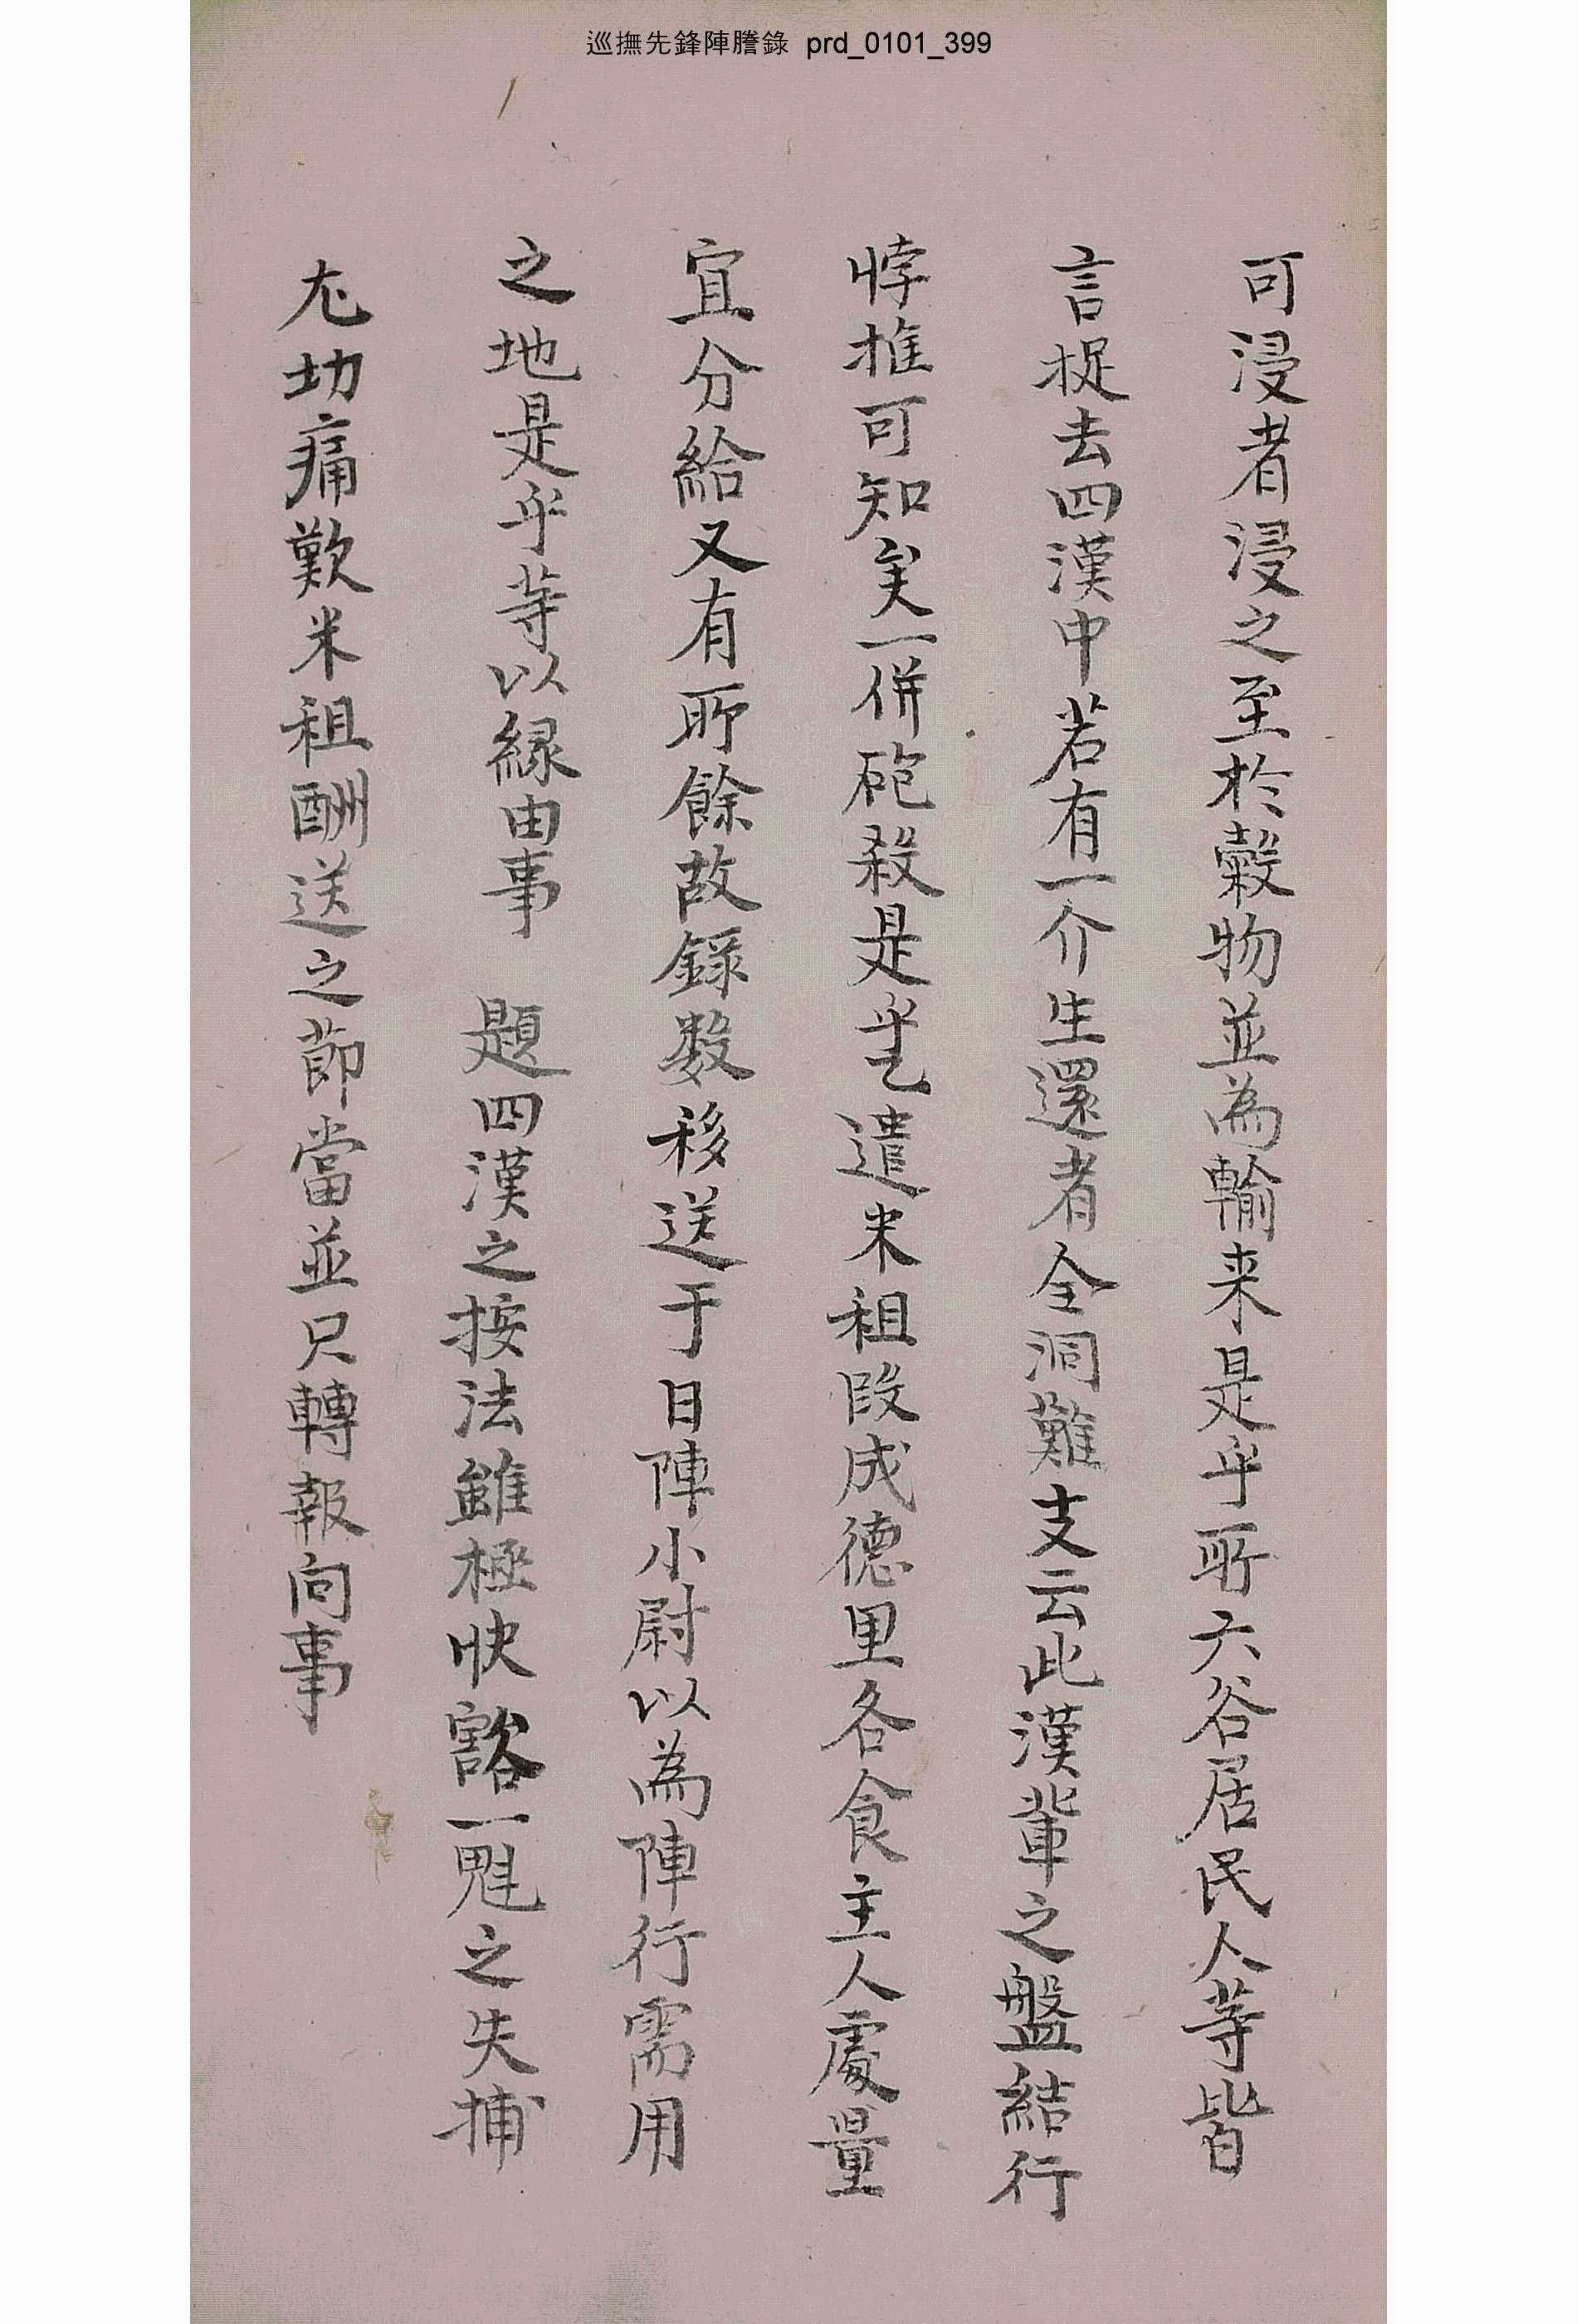 巡撫先鋒陣謄錄 prd_0101_399
可浸者浸之至於穀物並為輸来是乎所六谷居民人等皆
言捉去四漢中若有一介生還者全洞難支云此漢軰之盤結行
悖推可知矣一併砲殺是乎乙遣米租段成德里各食主人處量
宜分給又有所餘故錄数移送于日陣小尉以為陣行需用
之地是乎等以緣由事 題四漢之按法雖極快豁一魁之失捕
尤切痛歎米租酬送之節當並只轉報向事